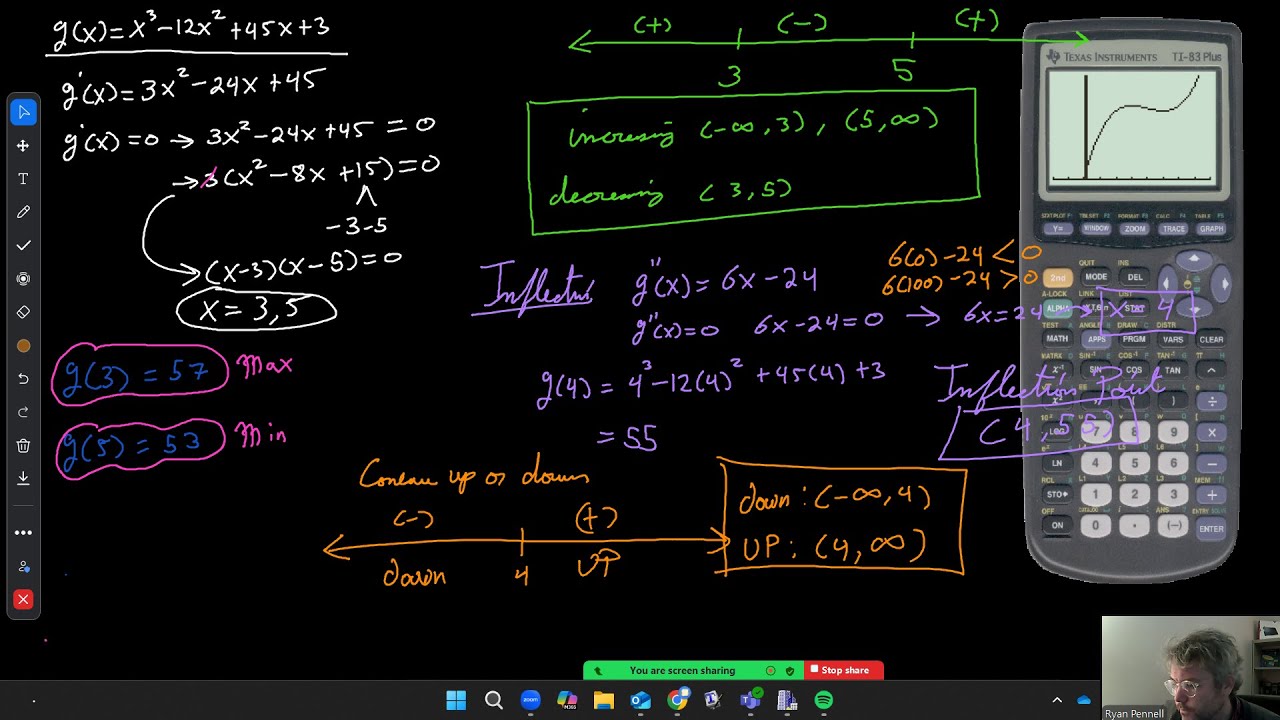 g(x)=x³-12x²+45x+3
g'(x)=3x²-24x+45
g'(x)=0 → 3x²-24x+45=0
→3(x²-8x+15)=0
-3-5
(x-3)(x-5)=0
x=3,5
g(3)=57 Max
g(5)=53 Min
(+) (-) (+)
3 5
increasing (-∞,3), (5,∞)
decreasing (3,5)
Inflection
g''(x)=6x-24
6(0)-24<0
6(100)-24>0
g''(x)=0 6x-24=0 → 6x=24 → x=4
g(4)=4³-12(4)²+45(4)+3
=55
Inflection Point
(4,55)
Concave up or down
(-) (+)
down 4 UP
down: (-∞,4)
UP: (4,∞)
TEXAS INSTRUMENTS TI-83 Plus
STAT PLOT F1 TBL SET F2 FORMAT F3 CALC F4 TABLE F5
Y= WINDOW ZOOM TRACE GRAPH
QUIT INS
2nd MODE DEL
A-LOCK LINK LIST
ALPHA STAT
TEST A ANGLE B DRAW C DISTR
MATH APPS PRGM VARS CLEAR
MATRX D SIN⁻¹ E COS⁻¹ F TAN⁻¹ G π H
x⁻¹ SIN COS TAN ^
x² ) ÷
LOG 7 8 9 ×
LN 4 5 6 −
RCL MEM
STO▸ 1 2 3 +
OFF CATALOG ANS ? ENTRY SOLVE
ON 0 . (-) ENTER
T
You are screen sharing Stop share
zoom
M365
Ryan Pennell